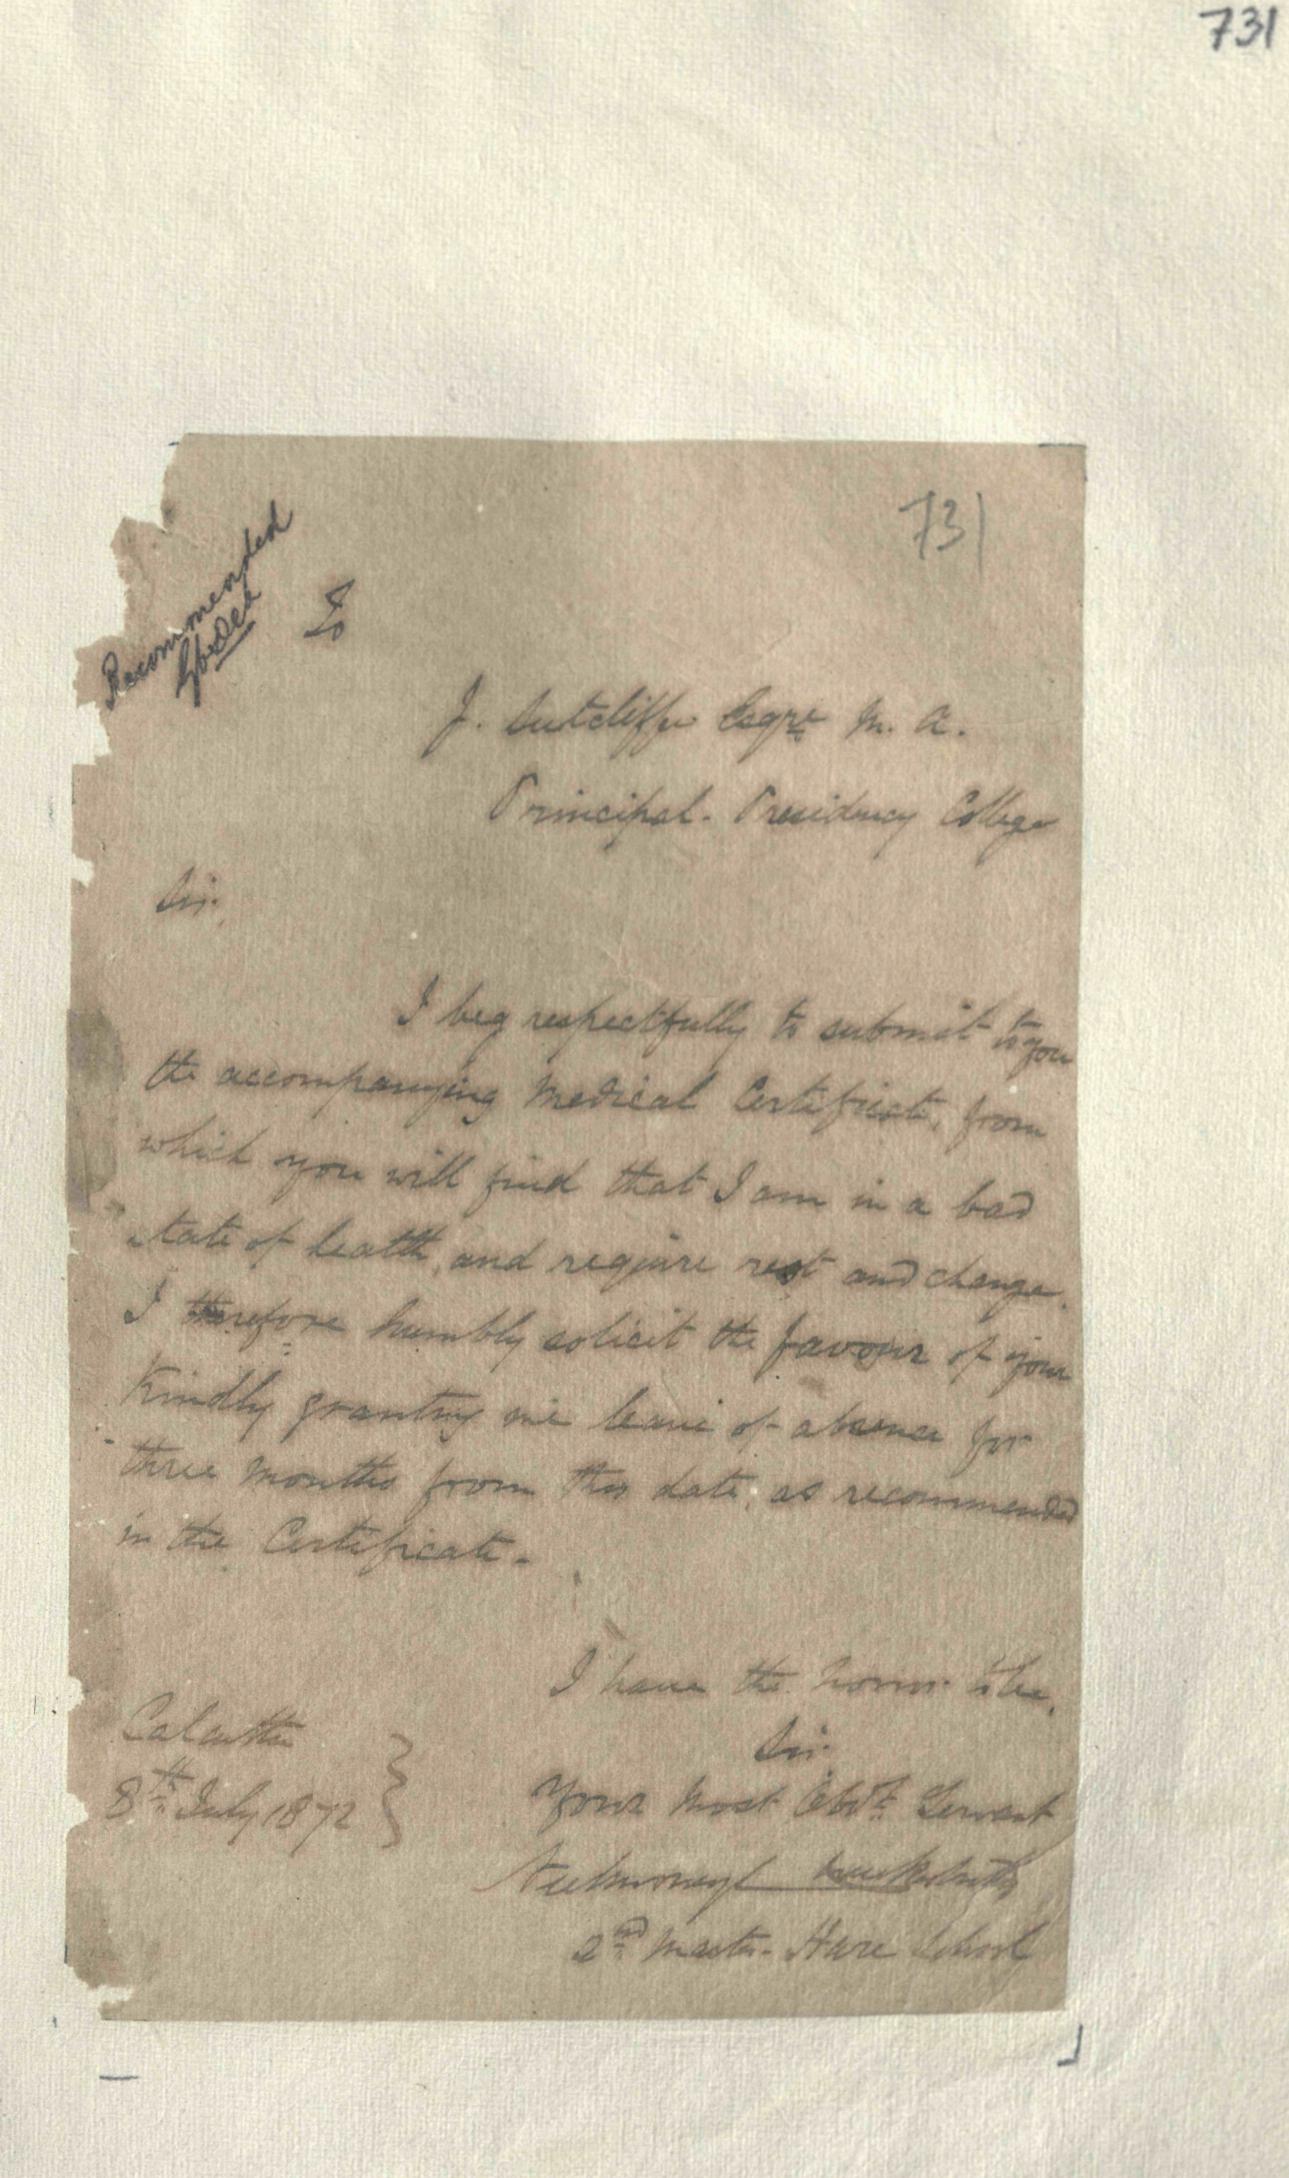 731
731
Recommended
To
J. Sutcliffe Esqre M. A.
Principal. Presidency College
Sir,
I beg respectfully to submit to you
the accompanying Medical Certificate, from
which you will find that I am in a bad
state of health, and require rest and change.
I therefore humbly solicit the favour of your
kindly granting me leave of absence for
three months from this date, as recommended
in the Certificate.
I have the honor to be,
Sir,
Your most Obdt. Servant
Calcutta
8th July 1872
2nd Master. Hare School